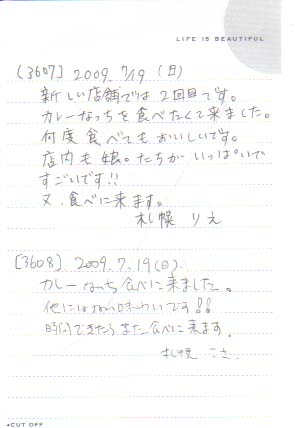 LIFE IS BEAUTIFUL
[3607] 2009. 7/19 (日)
新しい店舗では2回目です。
カレーなっちを食べたくて来ました。
何度食べてもおいしいです。
店内も娘。たちがいっぱいで
すごいです!!
又、食べに来ます。
札幌 りえ
[3608] 2009. 7. 19(日).
カレーなっち食べに来ました。
他にはない味わいです!!
時間できたらまた食べに来ます.
札幌
◀CUT OFF